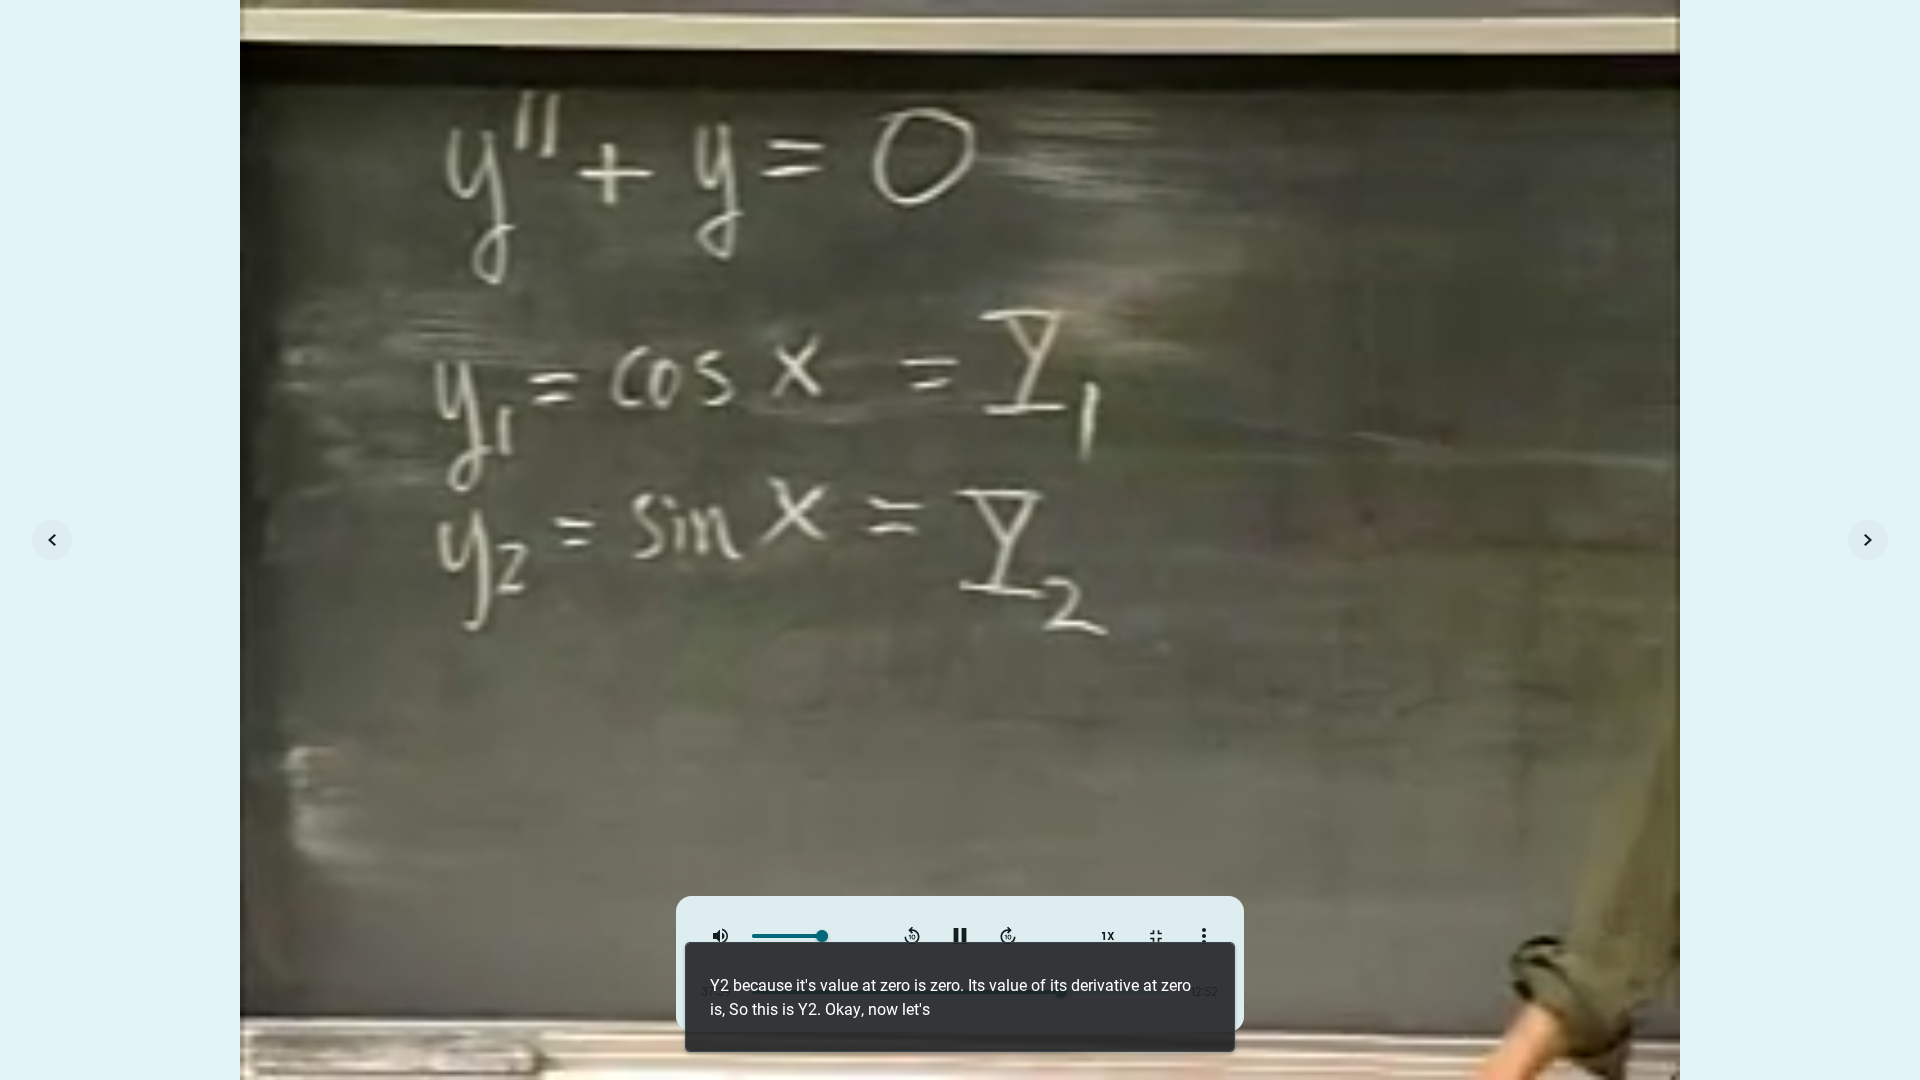 y'' + y = 0
y₁ = cos x = Y₁
y₂ = sin x = Y₂
1X
12:52
Y2 because it's value at zero is zero. Its value of its derivative at zero
is, So this is Y2. Okay, now let's